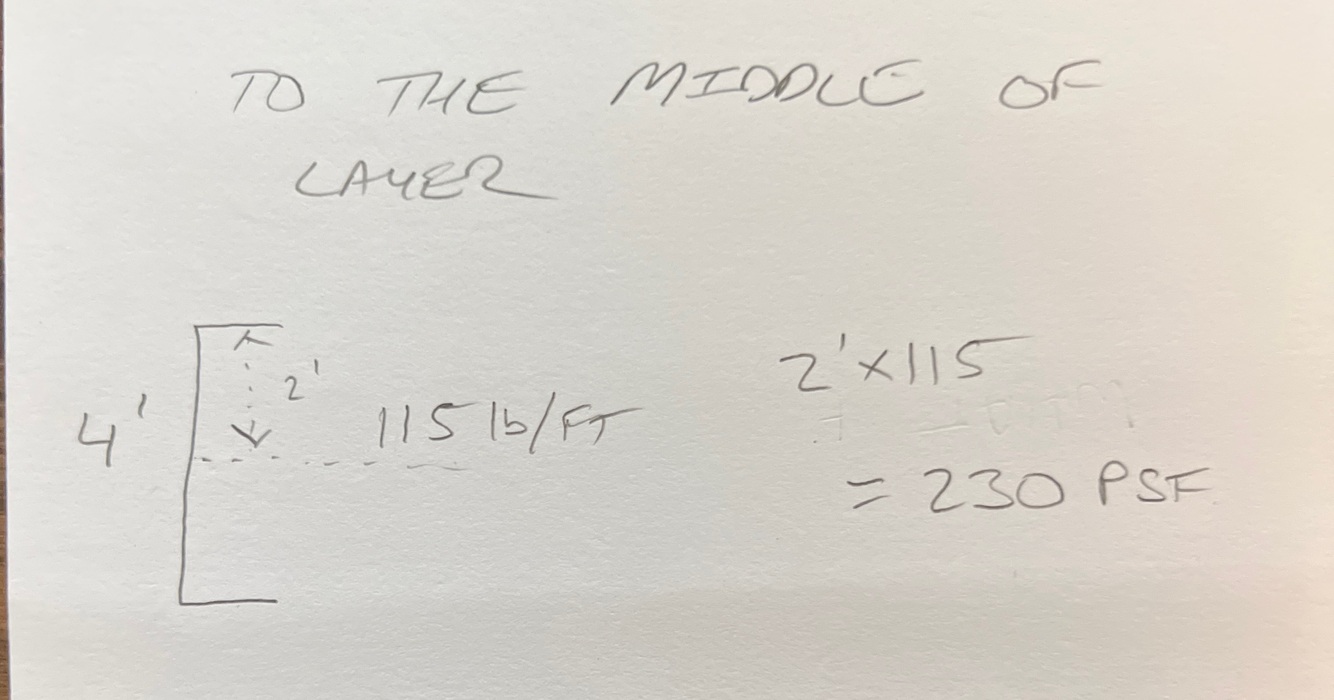 TO THE MIDDLE OF
LAYER
4'
2'
115 lb/FT
2' x 115
= 230 PSF